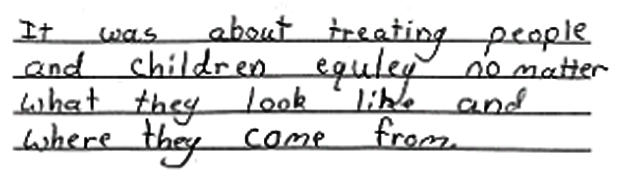 It was about treating people
and children equley no matter
what they look like and
where they come from.